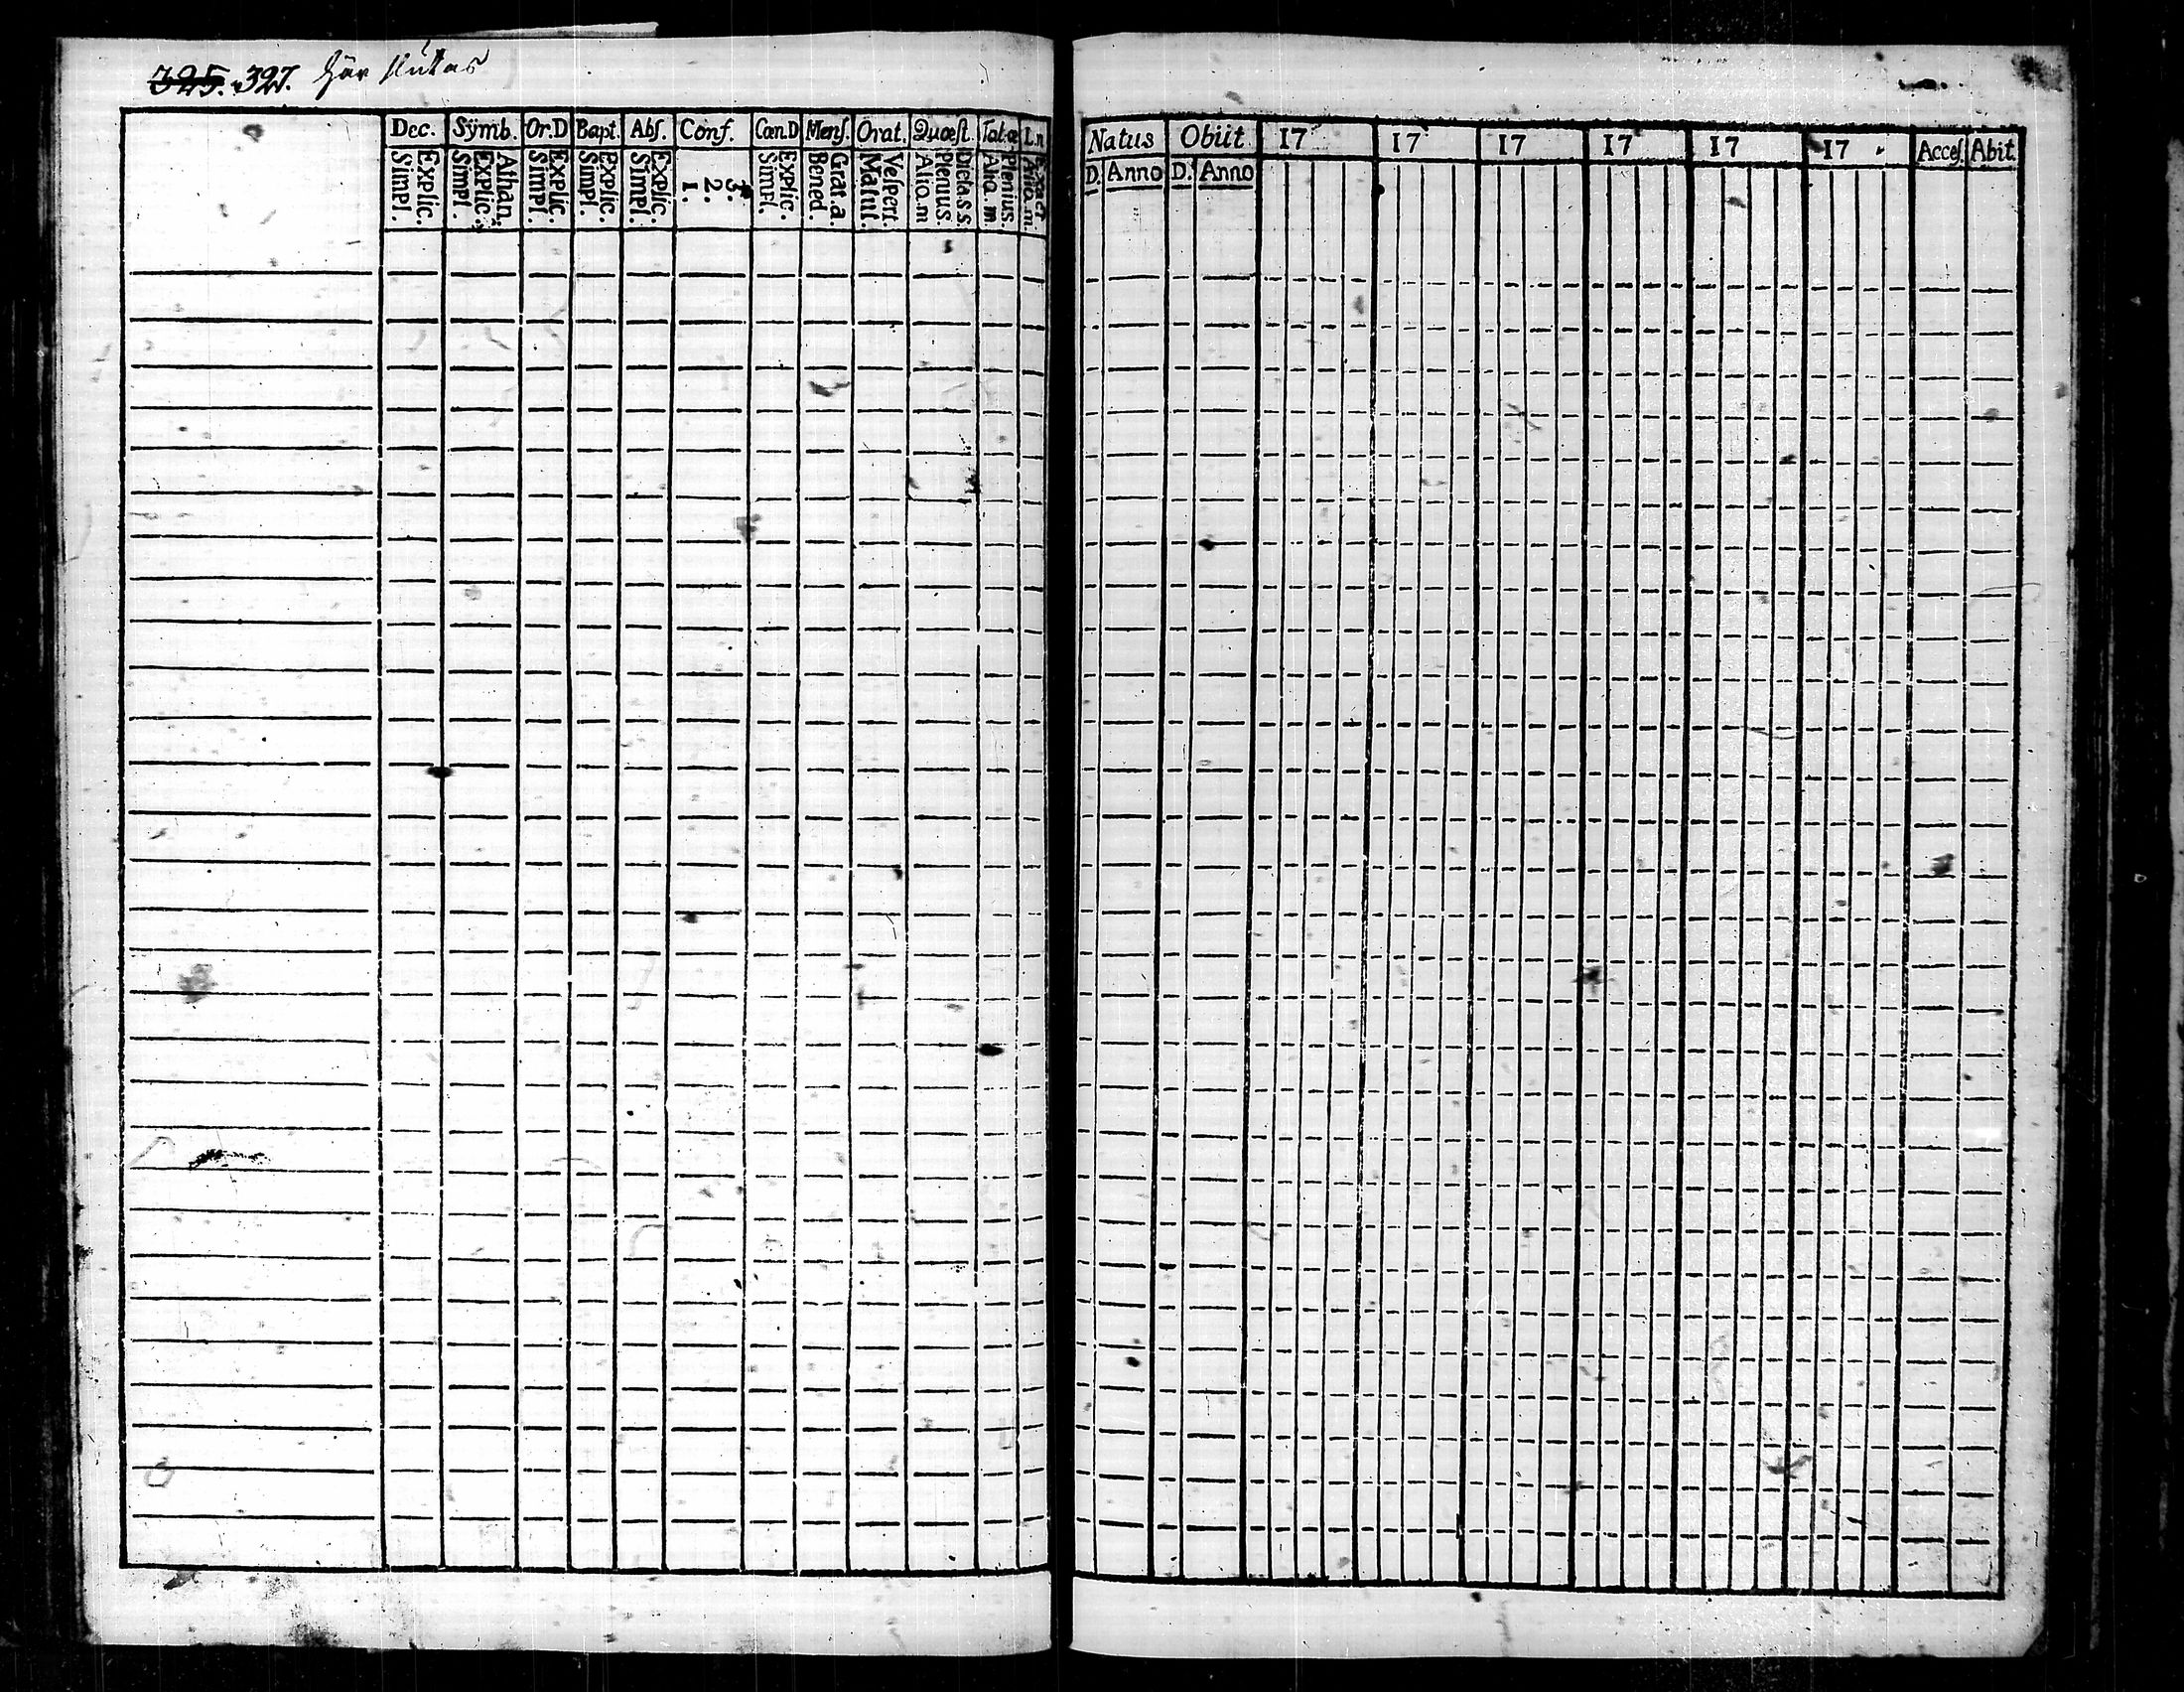 325. 327. här slutas
Dec. Sÿmb. Or.D Bapt. Abſ. Conf. Cœn.D Menſ. Orat. Quœſt. Tab.œ Ln
Explic. Simpl. Athan. Explic. Simpl. Explic. Simpl. Explic. Simpl. Explic. Simpl. 3. 2. 1. Explic. Simpl. Grat.a. Bened. Veſpert. Matut. Dicta.s.s. Plenius. Aliq.m Plenius. Aliq.m. Exacte Aliq.m.
Natus Obiit 17 17 17 17 17 17 Acceſ. Abit.
D. Anno D. Anno